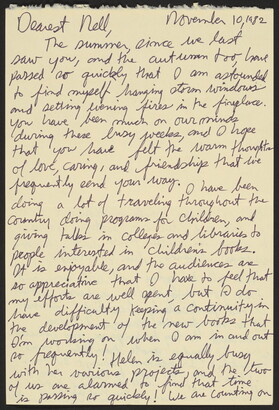 Dearest Nell, November 10, 1982
The summer, since we last
saw you, and the autumn too, have
passed so quickly that I am astounded
to find myself hanging storm windows
and setting evening fires in the fireplace.
You have been much on our minds
during these busy weeks, and I hope
that you have felt the warm thoughts
of love, caring, and friendship that we
frequently send your way. I have been
doing a lot of traveling throughout the
country doing programs for children, and
giving talks in colleges and libraries to
people interested in children's books.
It is enjoyable, and the audiences are
so appreciative that I have to feel that
my efforts are well spent, but I do
have difficulty keeping a continuity in
the development of the new books that
I'm working on when I am in and out
so frequently! Helen is equally busy
with her various projects, and the two
of us are alarmed to find that time
is passing so quickly! We are counting on